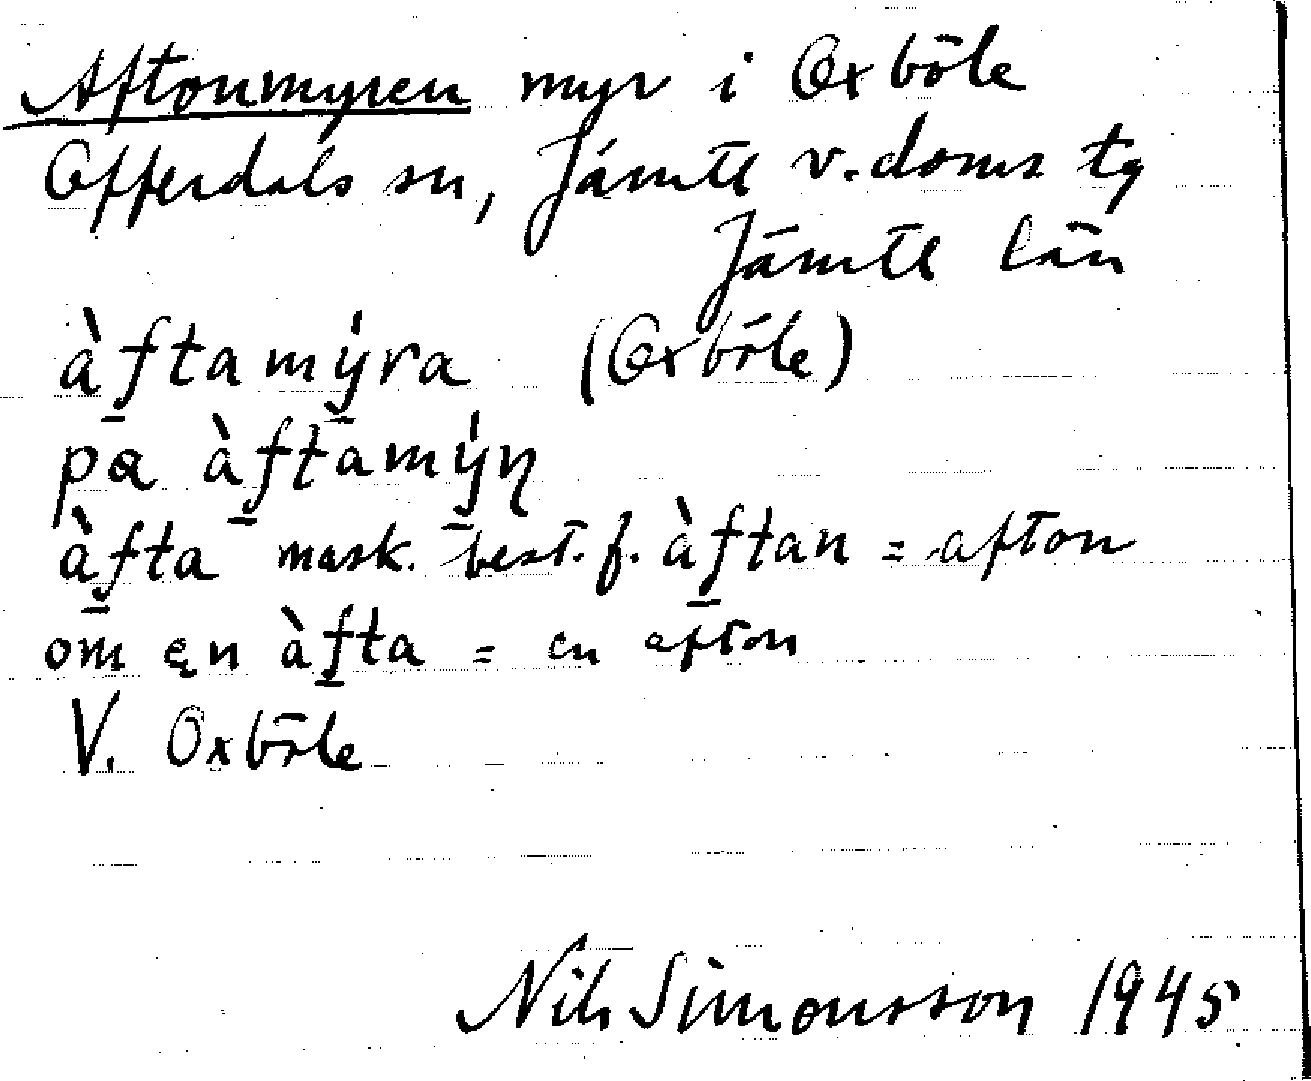 Aftonmyren myr i Oxböle
Offerdals sn, Jämtl v. doms tg
Jämtl län
àftamýra (Oxböle)
pa àftamýn
àfta mask. best. f. àftan = afton
om en àfta = en afton
V. Oxböle
Nils Simonsson 1945